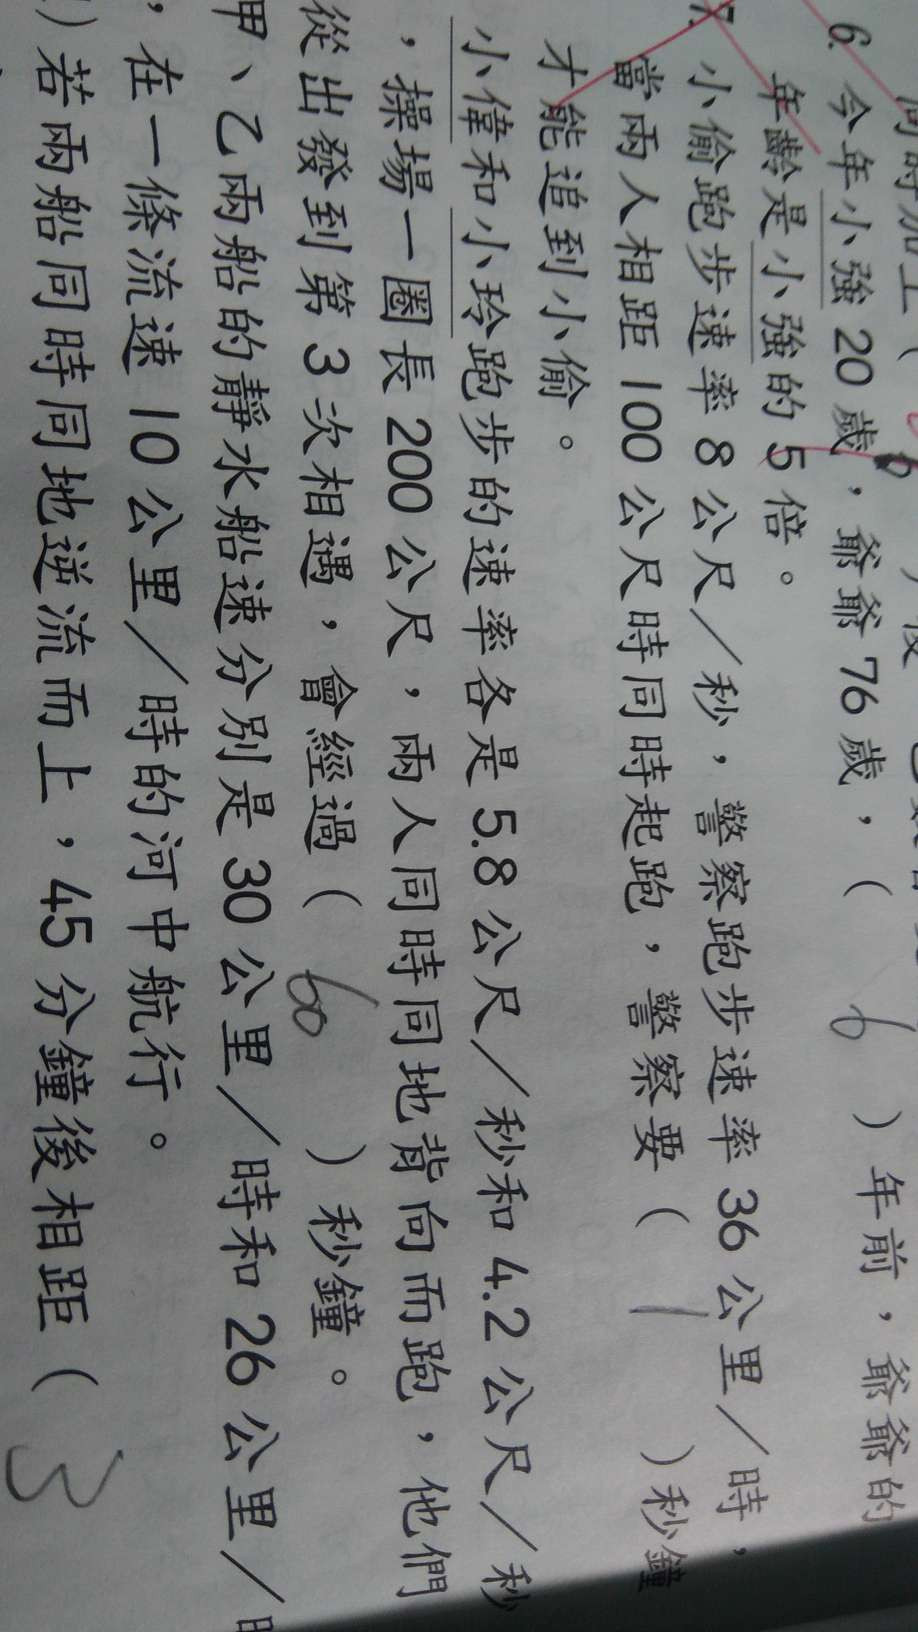 同時加上(
)後
6. 今年小強20歲，爺爺76歲，( 6 )年前，爺爺的
年齡是小強的5倍。
7. 小偷跑步速率8公尺／秒，警察跑步速率36公里／時，
當兩人相距100公尺時同時起跑，警察要( 1 )秒鐘
才能追到小偷。
小偉和小玲跑步的速率各是5.8公尺／秒和4.2公尺／秒
，操場一圈長200公尺，兩人同時同地背向而跑，他們
從出發到第3次相遇，會經過( 60 )秒鐘。
甲、乙兩船的靜水船速分別是30公里／時和26公里／時
，在一條流速10公里／時的河中航行。
)若兩船同時同地逆流而上，45分鐘後相距( 3